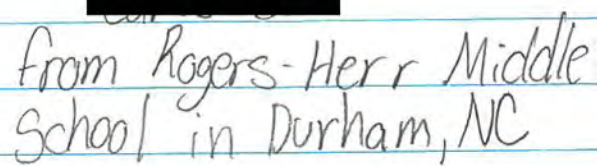 from Rogers-Herr Middle
School in Durham, NC